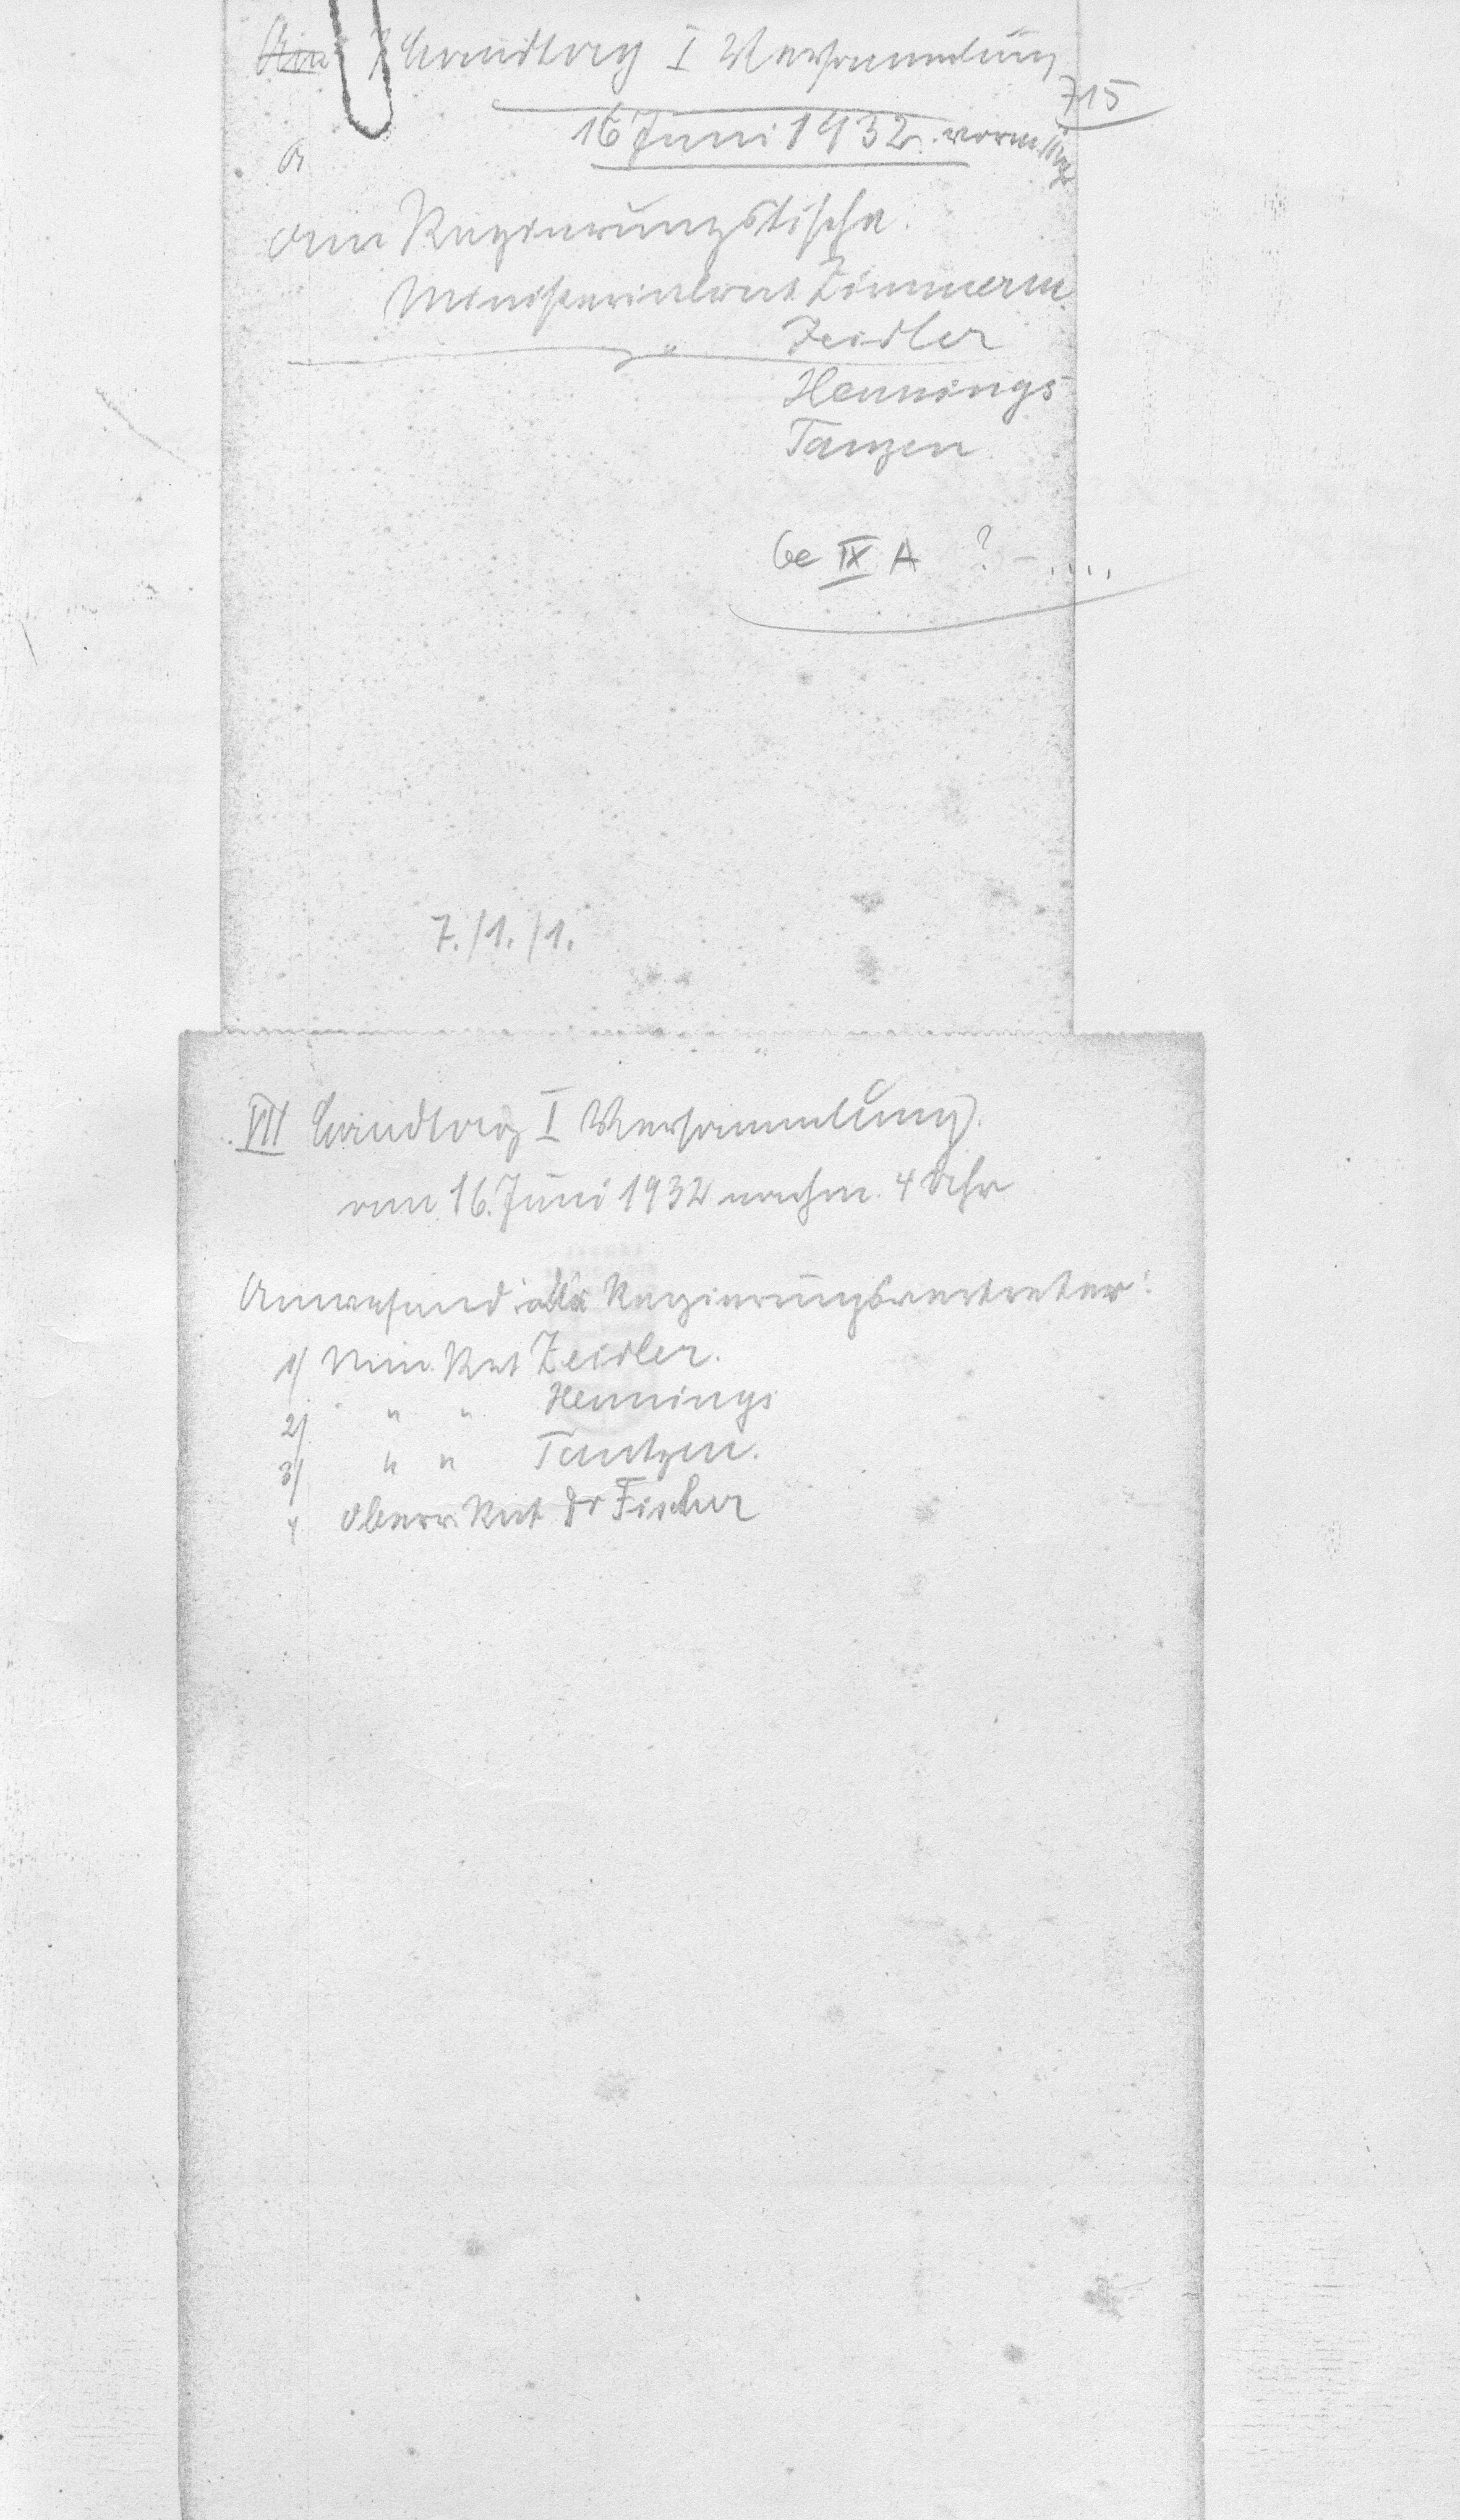 7 Landtag I Versammlung
715
16 Juni 1932. vorm
am Regierungstische.
Ministerialrat Zimmerm.
" Zeidler
Hennings
Tanzen
Ge IX A ? - ....
7./1./1.
VII Landtag I Versammlung.
am 16. Juni 1932 nachm. 4 Uhr
Anwesend als Regierungsvertreter:
1/ Min. Rat Zeidler.
2/ " " Hennings
3/ " " Tantzen.
4 Oberr. Rat Dr Fischer